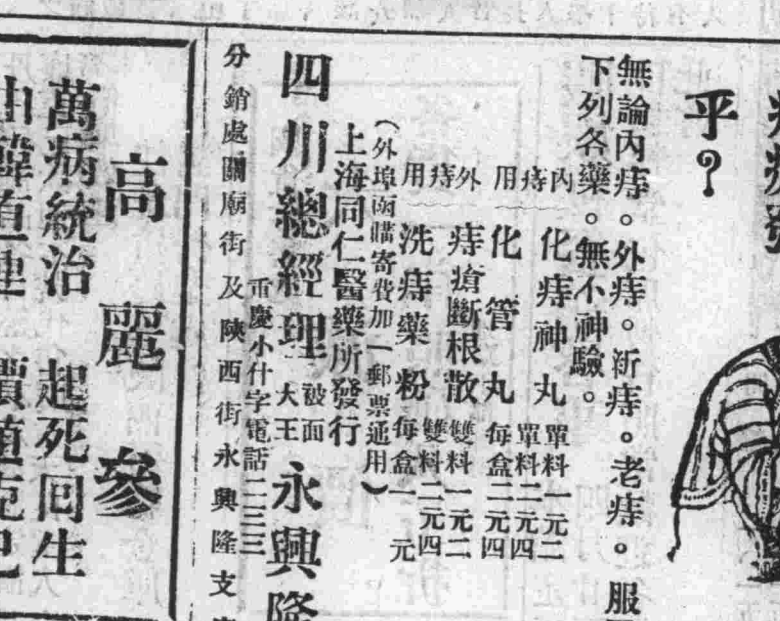 乎？
無論內痔。外痔。新痔。老痔。服
下列各藥。無不神驗。
內痔用
化痔神丸 單料一元二 雙料二元四
化管丸 每盒二元四
外痔用
痔瘡斷根散 單料一元二 雙料二元四
洗痔藥粉 每盒一元
（外埠函購寄費加一郵票通用）
上海同仁醫藥所發行
四川總經理 被面大王 永興隆
重慶小什字電話二三三
分銷處關廟街及陝西街永興隆支
高麗參
萬病統治 起死回生